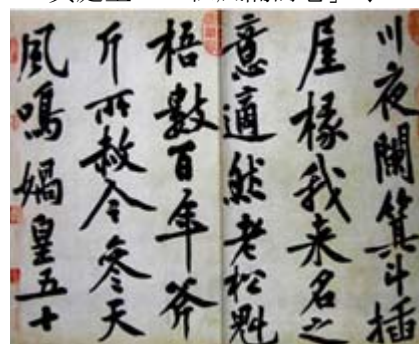 川夜闌箕斗插
屋椽我来名之
意適然老松魁
梧數百年斧
斤所赦今參天
風鳴媧皇五十